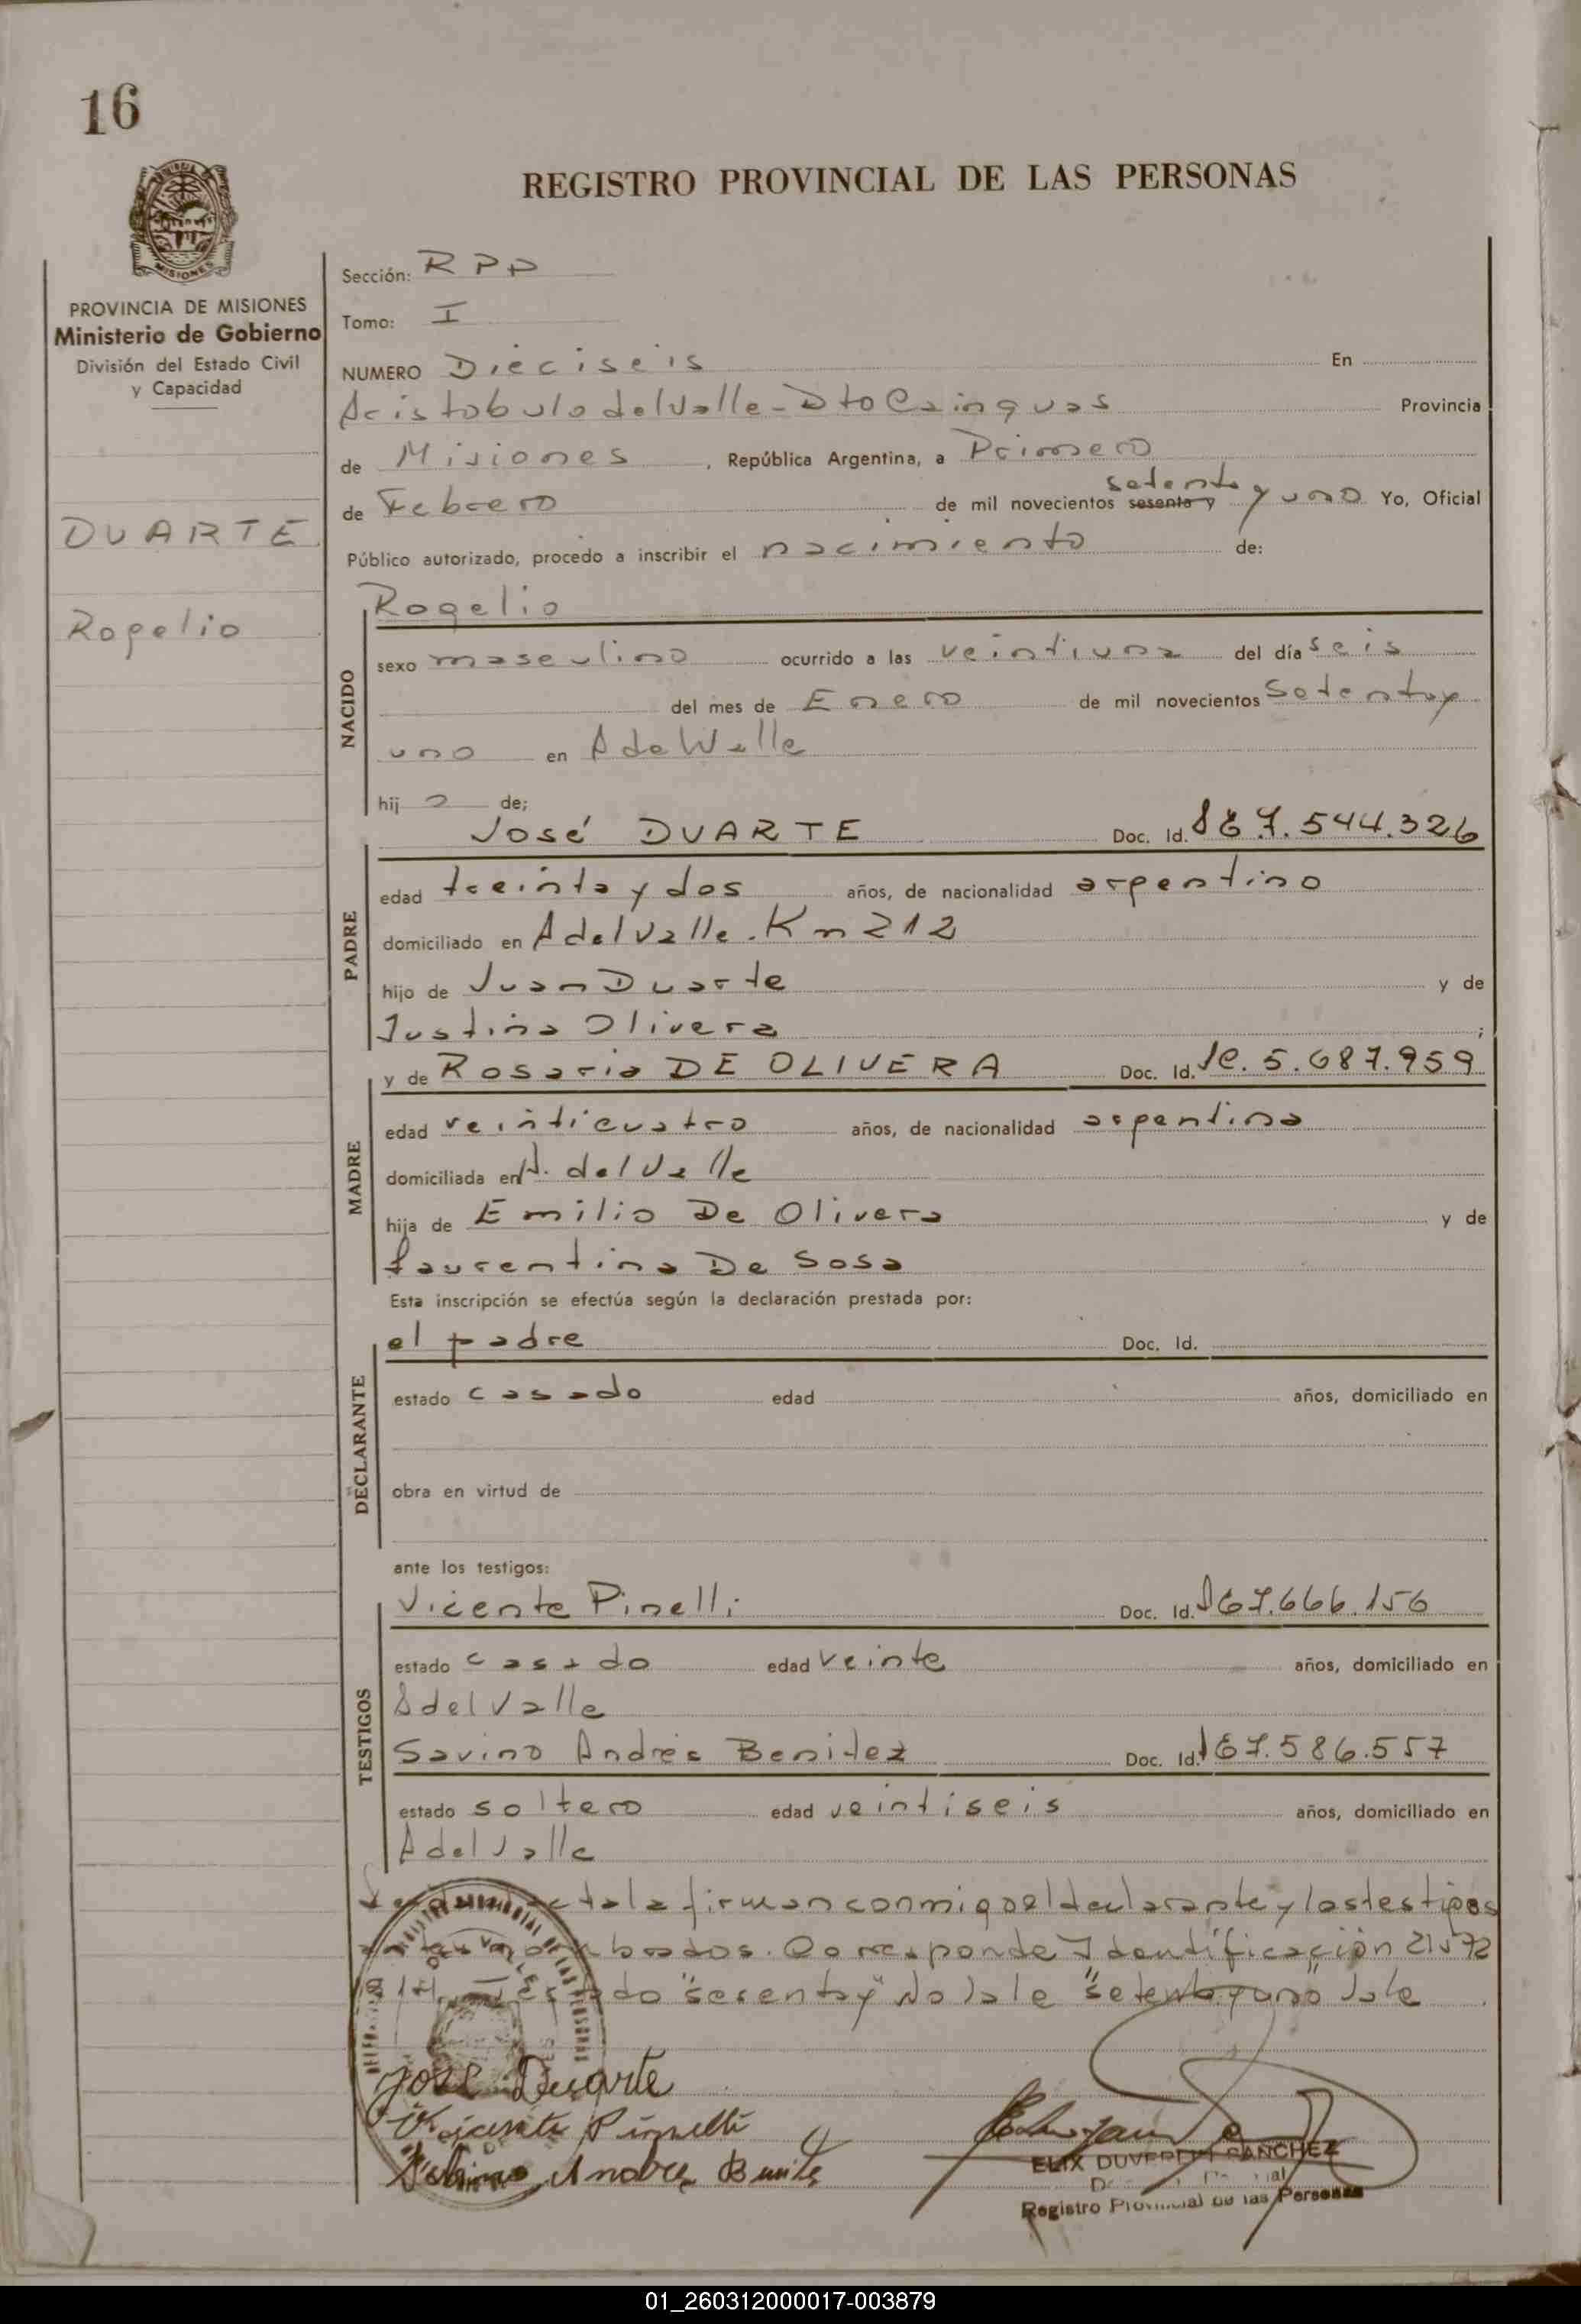 16
REGISTRO PROVINCIAL DE LAS PERSONAS
MISIONES
PROVINCIA DE MISIONES
Ministerio de Gobierno
División del Estado Civil
y Capacidad
DUARTE
Rogelio
Sección: RPP
Tomo: I
NUMERO Dieciseis En
Aristobulo del Valle - Dto Cainguas Provincia
de Misiones, República Argentina, a Primero
de Febrero de mil novecientos sesenta y setenta y uno Yo, Oficial
Público autorizado, procedo a inscribir el nacimiento de:
NACIDO
Rogelio
sexo masculino ocurrido a las veintiuna del día seis
del mes de Enero de mil novecientos Setenta y
uno en A del Valle
hijo de;
PADRE
José DUARTE Doc. Id. 7.544.326
edad treinta y dos años, de nacionalidad argentino
domiciliado en A del Valle. Km 212
hijo de Juan Duarte y de
Justina Olivera ;
MADRE
y de Rosaria DE OLIVERA Doc. Id. lc. 5.687.959
edad veinticuatro años, de nacionalidad argentina
domiciliada en A. del Valle
hija de Emilio De Olivera y de
Laurentina De Sosa
Esta inscripción se efectúa según la declaración prestada por:
DECLARANTE
el padre Doc. Id.
estado casado edad años, domiciliado en
obra en virtud de
ante los testigos:
TESTIGOS
Vicente Pinelli Doc. Id. 7.666.156
estado casado edad veinte años, domiciliado en
A del Valle
Savino Andrés Benitez Doc. Id. 7.586.557
estado soltero edad veintiseis años, domiciliado en
A del Valle
acta la firman conmigo el declarante y los testigos
nombrados. Corresponde Identificación
"sesenta y" No Vale "setenta y uno" Vale
José Duarte
Vicente Pinelli
Sabino Andres Benite
ELIX DUVERLY SANCHEZ
Registro Provincial de las Personas
01_260312000017-003879